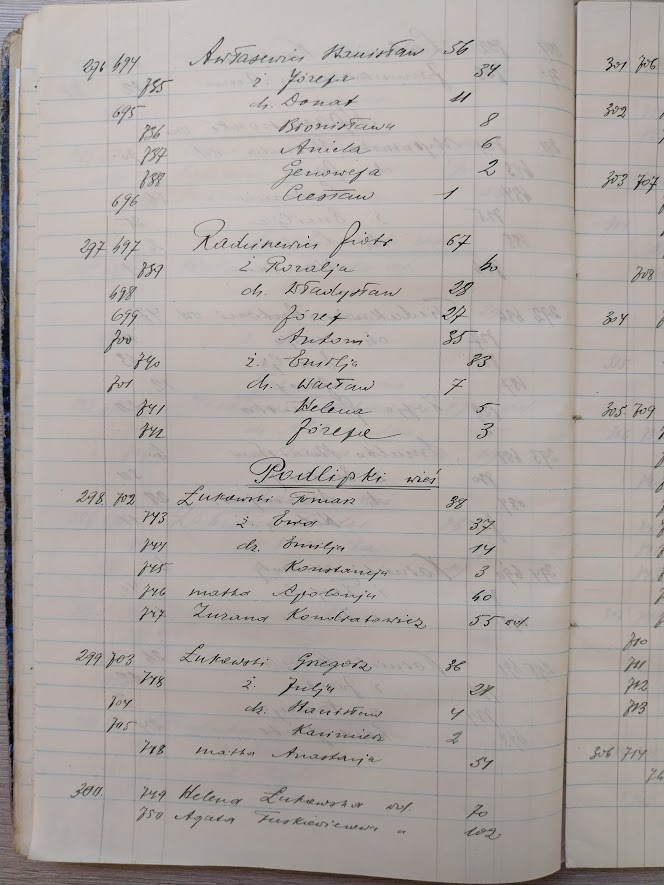 296 494 Awłasewicz Stanisław 56
735 ż. Józefa 34
695 dz. Donat 11
736 Bronisława 8
737 Aniela 6
738 Genowefa 2
696 Czesław 1
297 497 Radziewicz Piotr 67
739 ż. Rozalja 60
498 dz. Władysław 28
699 Józef 27
700 Antoni 35
740 ż. Emilja 33
701 dz. Wacław 7
741 Helena 5
742 Józefa 3
Podlipki wieś
298. 702 Łukowski Tomasz 38
743 ż. Ewa 37
744 dz. Emilja 14
745 Konstancja 3
746 matka Apolonja 60
747 Zuzana Kondratowicz 55 wd.
299 703 Łukowski Gregorz 36
748 ż. Julja 28
704 dz. Stanisław 4
705 Kazimierz 2
748 matka Anastazja 54
300. 749 Helena Łukowska wd. 70
750 Agata 102
301 706
302
303 707
708
304
305 709
710
711
712
713
306 714